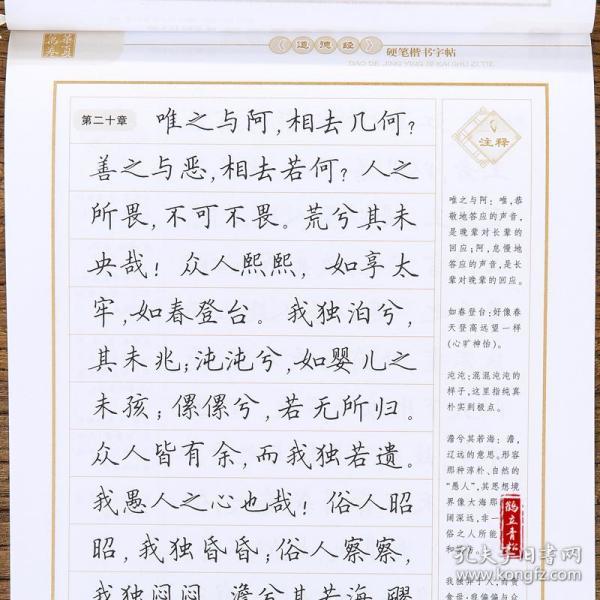 道德经
硬笔楷书字帖
DAO DE JING YING BI KAI SHU ZI TIE
第二十章
唯之与阿,相去几何?
善之与恶,相去若何?人之
所畏,不可不畏。荒兮其未
央哉!众人熙熙,如享太
牢,如春登台。我独泊兮,
其未兆;沌沌兮,如婴儿之
未孩;傫傫兮,若无所归。
众人皆有余,而我独若遗。
我愚人之心也哉!俗人昭
昭,我独昏昏;俗人察察,
我独闷闷。澹兮其若海,飂
注释
唯之与阿:唯,恭
敬地答应的声音,
是晚辈对长辈的
回应;阿,怠慢地
答应的声音,是长
辈对晚辈的回应。
如春登台:好像春
天登高远望一样
(心旷神怡)。
沌沌:混混沌沌的
样子,这里指纯真
朴实到极点。
澹兮其若海:澹,
辽远的意思。形容
那种淳朴、自然的
“愚人”,其思想境
界像大海那
阔深远,非一
俗之人所能
和
我独异于人,而贵
食母:我偏偏与众
鹤立青松
孔夫子旧书网
www.kongfz.com